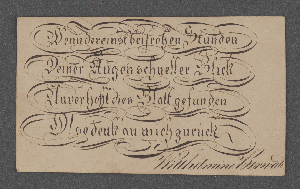 Wenn dereinst bei frohen Stunden
Deiner Augen schneller Blick
Unverhofft dies Blatt gefunden
O! so denk an mich zurück
Wilhelmine